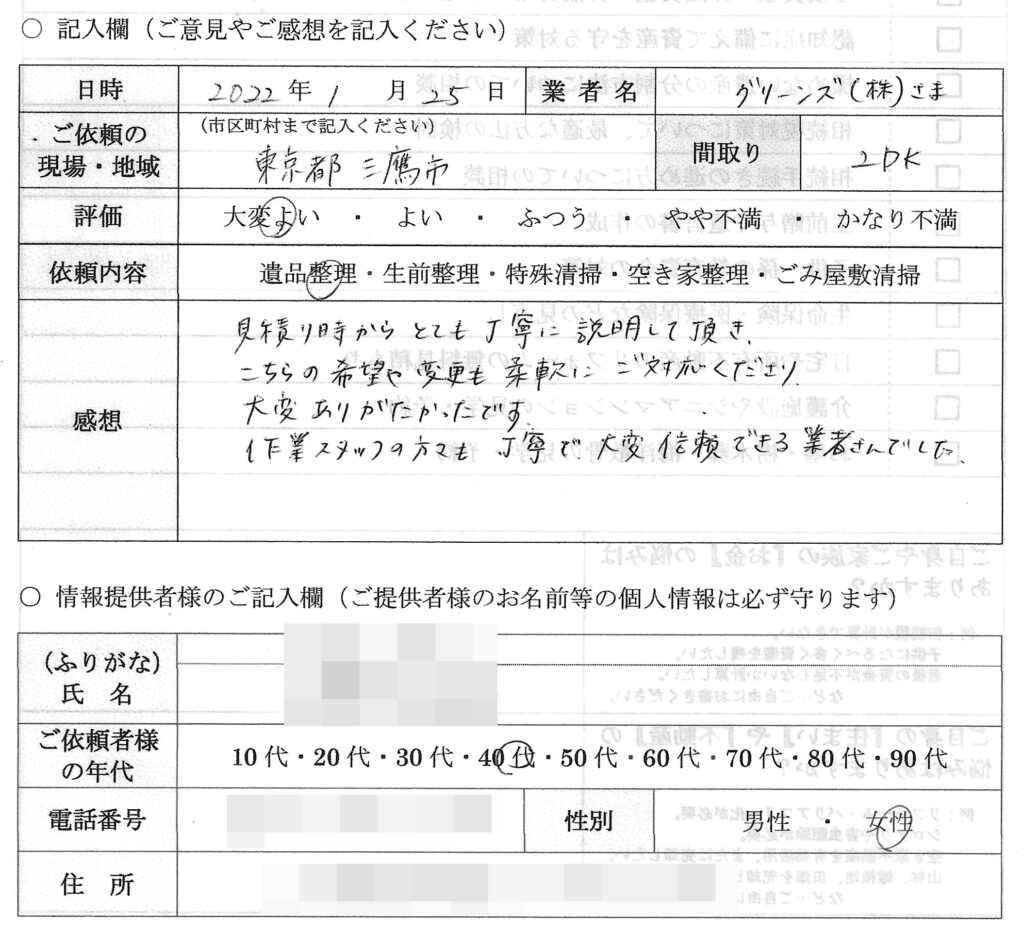 ○ 記入欄（ご意見やご感想を記入ください）
日時 2022年 1 月 25 日 業者名 グリーンズ(株)さま
ご依頼の現場・地域 （市区町村まで記入ください） 東京都 三鷹市 間取り 2DK
評価 大変よい ・ よい ・ ふつう ・ やや不満 ・ かなり不満
依頼内容 遺品整理・生前整理・特殊清掃・空き家整理・ごみ屋敷清掃
感想
見積り時からとても丁寧に説明して頂き、
こちらの希望や変更も柔軟にご対応くださり、
大変ありがたかったです。
作業スタッフの方々も丁寧で、大変信頼できる業者さんでした。
○ 情報提供者様のご記入欄（ご提供者様のお名前等の個人情報は必ず守ります）
（ふりがな）
氏 名
ご依頼者様の年代 10代・20代・30代・40代・50代・60代・70代・80代・90代
電話番号 性別 男性 ・ 女性
住 所